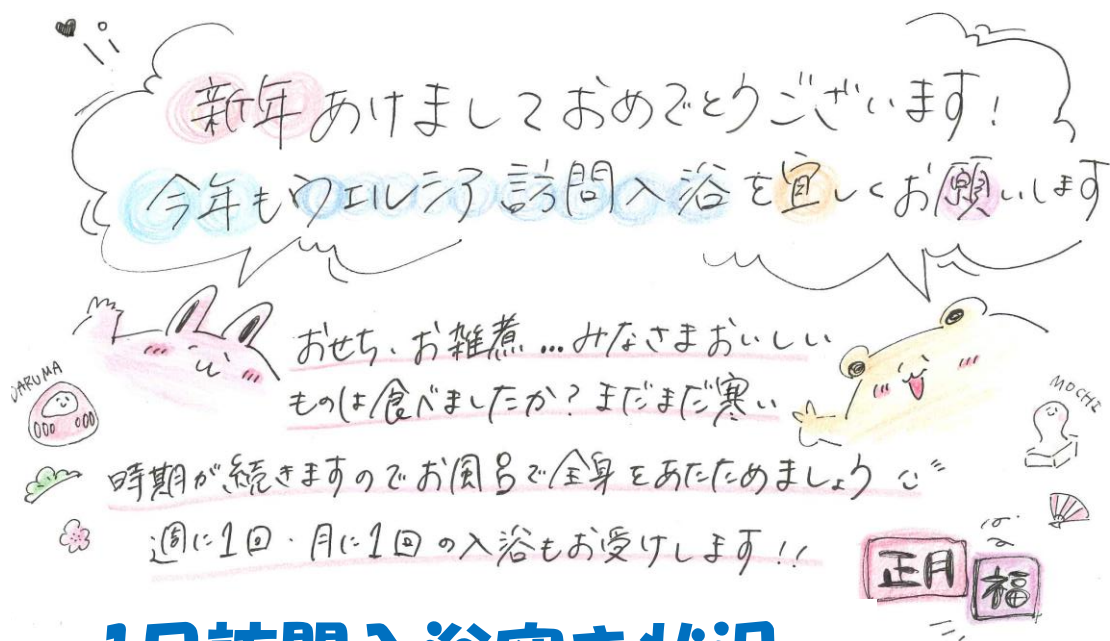 新年あけましておめでとうございます!
今年もウエルシア訪問入浴を宜しくお願いします
おせち、お雑煮…みなさまおいしい
ものは食べましたか?まだまだ寒い
DARUMA
MOCHI
時期が続きますのでお風呂で全身をあたためましょう
週に1回・月に1回の入浴もお受けします!!
正月
福